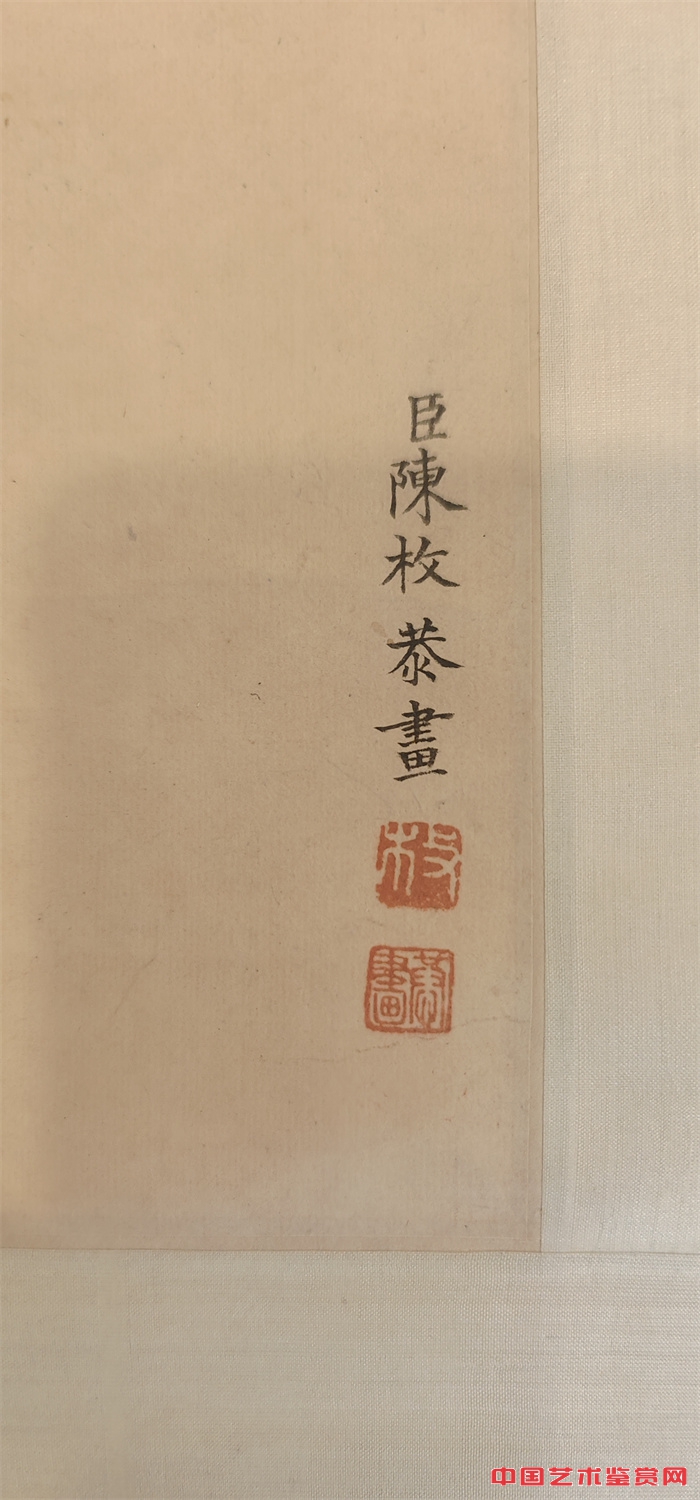 臣陳枚恭畫
枚
畫
中国艺术鉴赏网